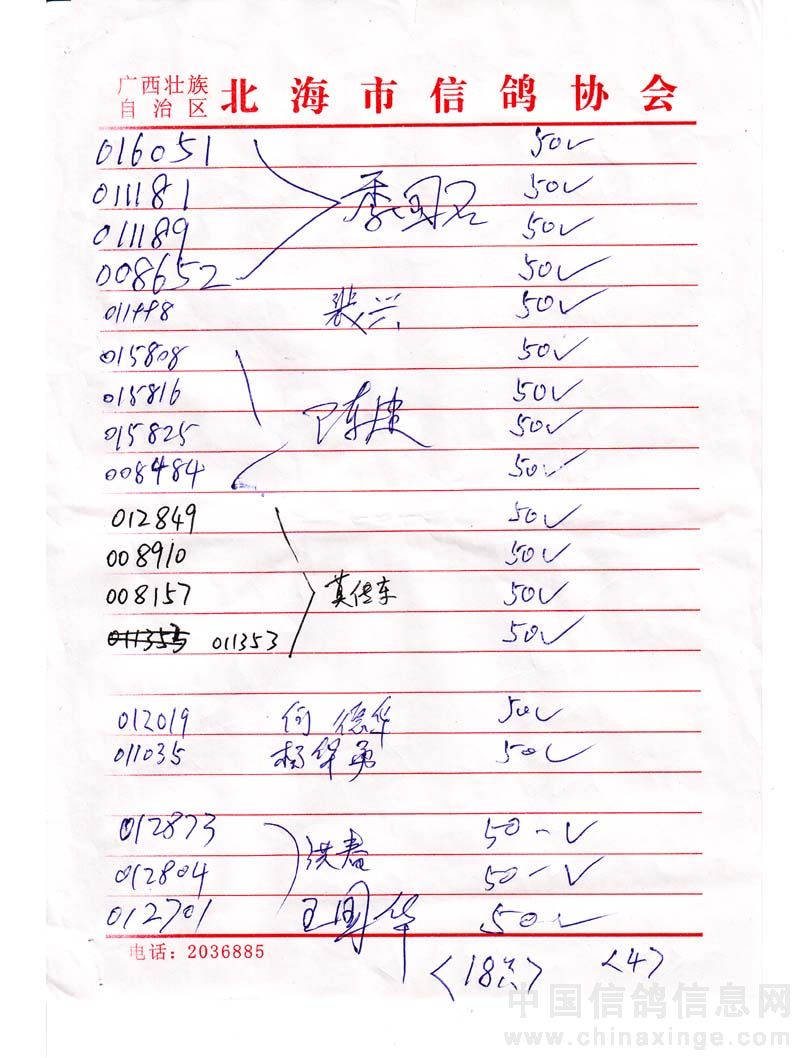 广西壮族
自治区 北海市信鸽协会
016051 50✓
011181 季国名 50✓
011189 50✓
008652 50✓
50✓
015808 50✓
015816 50✓
015825 陈建 50✓
008484 50✓
012849 50✓
008910 50✓
008157 莫传东 50✓
011353 50✓
012019 何德华 50✓
011035 杨华勇 50✓
012873 50-✓
012804 洪春 50-✓
012701 王国华 50✓
电话：2036885
<18只> <4>
中国信鸽信息网
www.chinaxinge.com